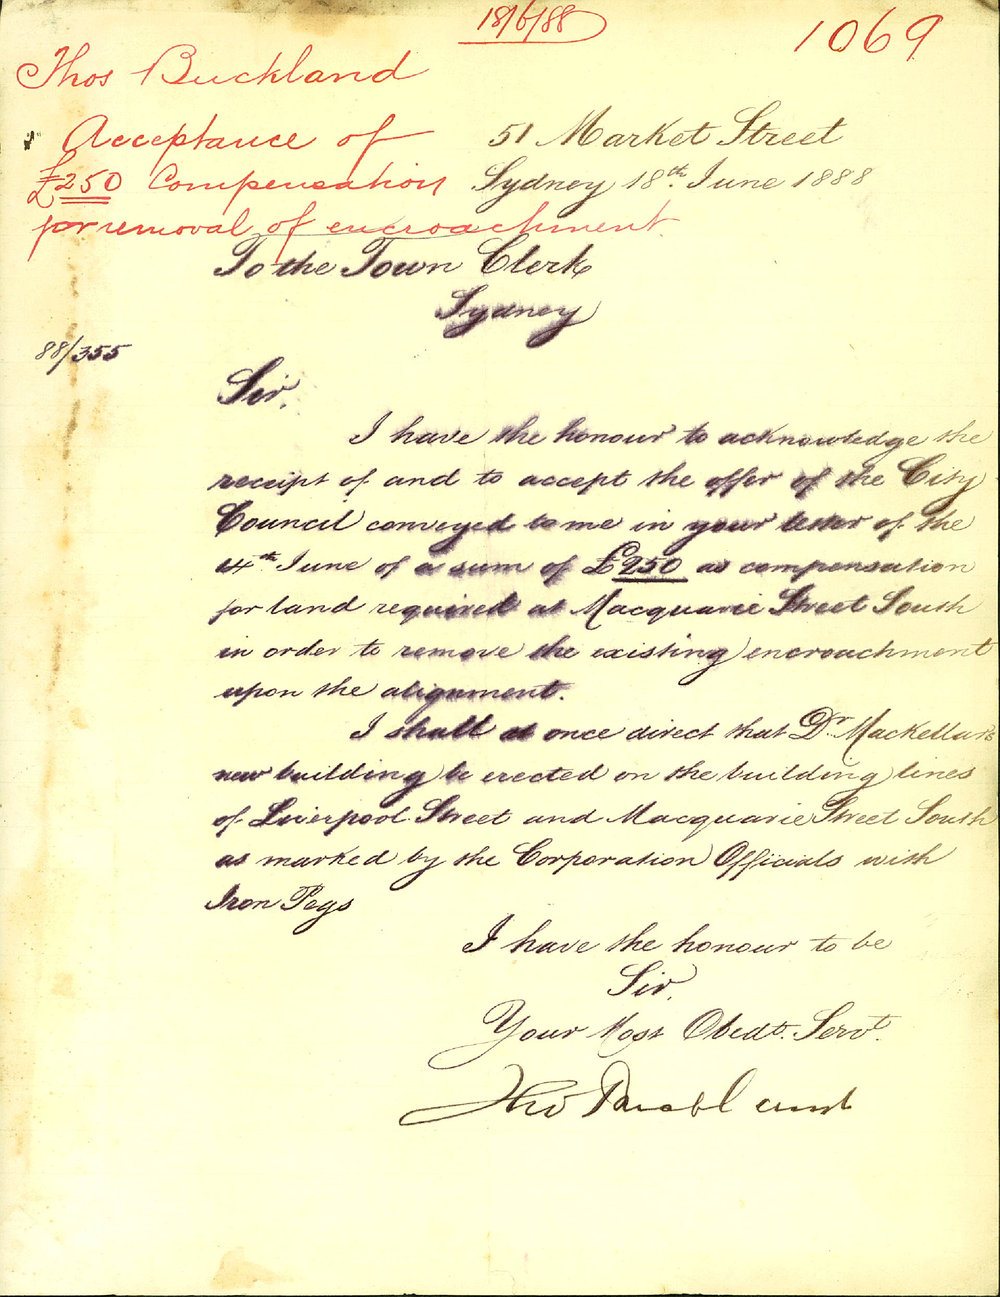 18/6/88
1069
Thos Buckland
Acceptance of
£250 Compensation
for removal of encroachment
51 Market Street
Sydney 18th June 1888
To the Town Clerk
Sydney
88/355
Sir,
I have the honour to acknowledge the
receipt of and to accept the offer of the City
Council conveyed to me in your letter of the
14th June of a sum of £250 as compensation
for land required at Macquarie Street South
in order to remove the existing encroachment
upon the alignment.
I shall at once direct that Dr. Mackellar's
new building be erected on the building lines
of Liverpool Street and Macquarie Street South
as marked by the Corporation Officials with
Iron Pegs
I have the honour to be
Sir,
Your Most Obedt. Servt.
Thos Buckland